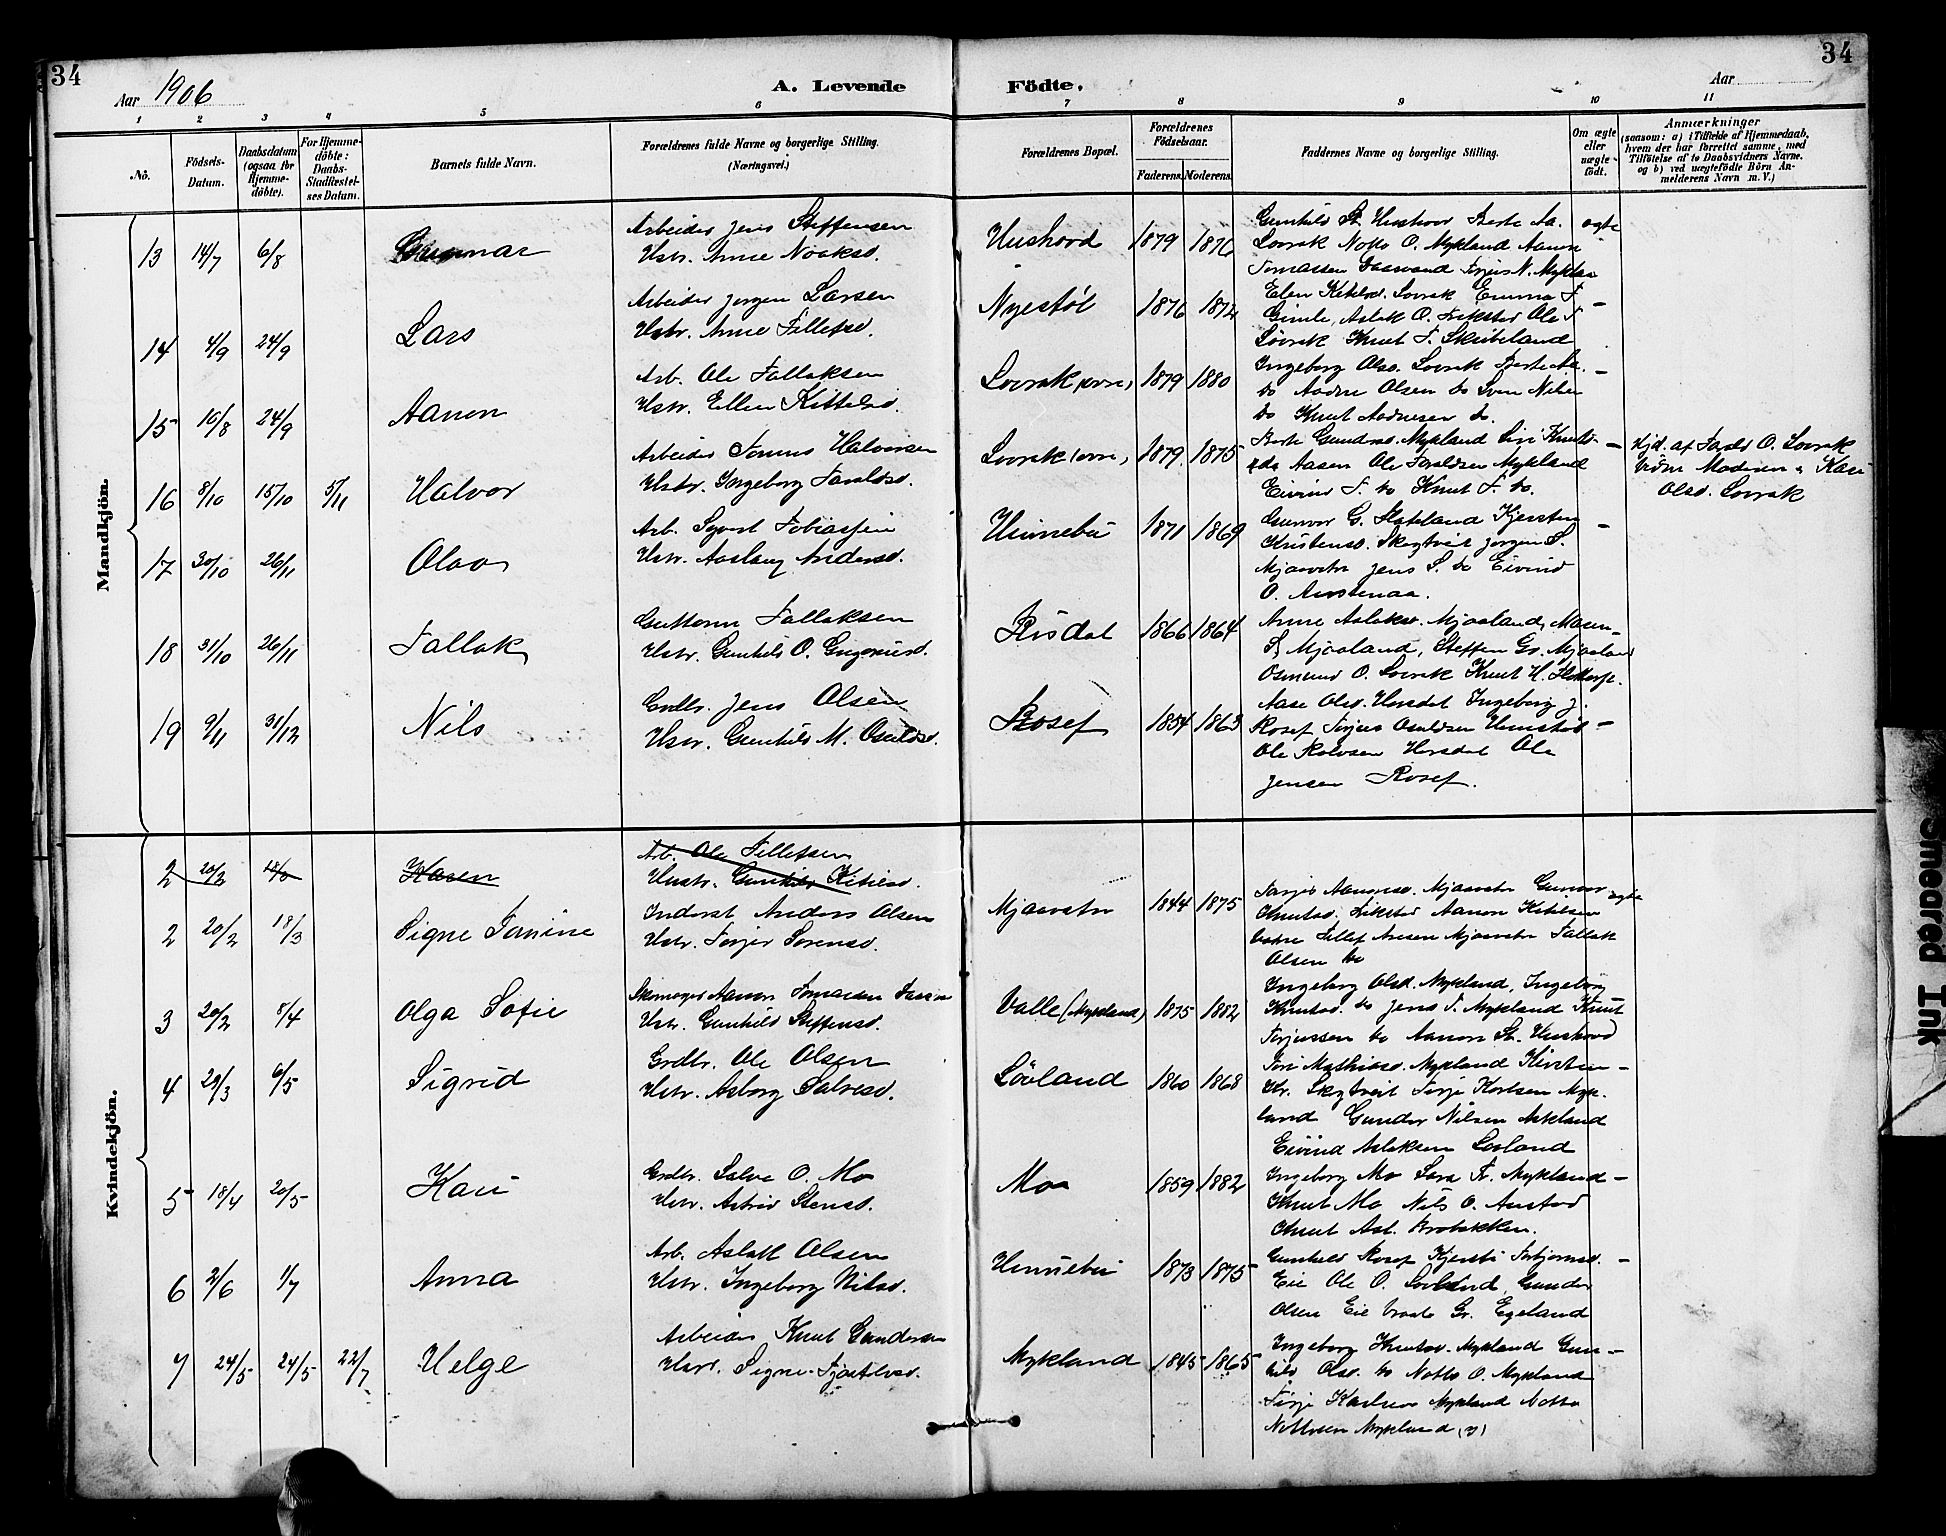 34
34
Aar 1906
A. Levende
Födte.
Aar
1 2 3 4 5 6 7 8 9 10 11
No.
Födsels-Datum.
Daabsdatum (ogsaa for Hjemme-döbte).
For Hjemme-döbte: Daabs-Stadfæstel-ses Datum.
Barnets fulde Navn.
Forældrenes fulde Navne og borgerlige Stilling.
(Næringsvei.)
Forældrenes Bopæl.
Forældrenes Födselsaar.
Faderens. Moderens.
Faddernes Navne og borgerlige Stilling.
Om ægte eller uægte födt.
Anmærkninger
(saasom: a) i Tilfælde af Hjemmedaab,
hvem der har forrettet samme, med
Tilföielse af to Daabsvidners Navne.
og b) ved uægtefödte Börn An-
melderens Navn m. V.)
Mandkjön.
13 14/7 6/8 Gunnar
Arbeider Jens Steffensen
Hstr. Anne Noaksd.
Hushovd 1879 1876
Gunhild St. Hushovd Berte Aa.
Lovrak Notto O. Mykland Aanon
Tomassen Terjus N. Mykland
ægte
14 4/9 24/9 Lars
Arbeider Jørgen Larsen
Hstr. Anne Tellefsd.
Nyestøl 1876 1872
Elen Kitilsd. Lovrak Emma T.
Gimle, Aslak O. Ole T.
Løvrak Knut T. Skribeland
-
15 10/8 24/9 Aanon
Arb. Ole Tallaksen
Hstr. Ellen Kittelsd.
Lovrak (øvre) 1879 1880
Ingeborg Olsd. Lovrak Berte Aa.
do Aadne Olsen do Sven Nilsen
do Knut Aadnesen do.
-
16 8/10 15/10 5/11 Halvor
Arbeider Tomas Halvorsen
Hstr. Ingeborg Taraldsd.
Lovrak (øvre) 1879 1875
Berte Gundersd. Mykland Siri Knuts-
Aasen Ole Taraldsen Mykland
Eivind T. do Knut T. do.
-
Hjd. af Tarald O. Lovrak
Vidne Moderen & Kari
Olsd. Lovrak
17 30/10 26/11 Olav
Arb. Syvert Tobiassen
Hstr. Aaslaug Andersd.
Hinnebu 1871 1869
Gunvor G. Flateland Kjersten
Kristensd. Skegtveit Jørgen S.
Mjaavatn Jens S. do Eivind
O. Austenaa.
-
18 31/10 26/11 Tallak
Guttorm Tallaksen
Hstr. Gunhild O. Gregoriusd.
Risdal 1866 1864
Anne Aslaksd. Mjaaland, Maren
S. Mjaaland, Steffen Gr. Mjaaland
Osmund O. Lovrak Knut H.
19 9/11 31/12 Nils
Grdbr. Jens Olsen
Hstr. Gunhild M. Osuldsd.
Rosef 1854 1863
Aase Olsd. Horsdal Ingeborg J.
Rosef Terjus Osuldsen
Ole Rolvsen Horsdal Ole
Jensen Rosef.
-
Kvindekjön.
2 20/2 18/3 Karen
Arb. Ole Tellefsen
Hustr. Gunhild Kitilsd.
2 20/2 18/3 Signe Tomine
Inderst Anders Olsen
Hstr. Terjer Sørensd.
Mjaavatn 1844 1875
Mjaavatn Gunvor
Knutsd. Aanon Kitilsen
Tellef Mjaavatn Tallak
Olsen do
ægte
3 20/2 8/4 Olga Sofie
Skomager Aanon Tomassen
Hstr. Gunhild Steffensd.
Valle (Mykland) 1875 1882
Ingeborg Olsd. Mykland, Ingeborg
Knutsd. do Jens T. Mykland Knut
Terjussen do Aanon St. Hushovd
4 29/3 6/5 Sigrid
Grdbr. Ole Olsen
Hstr. Asborg Salvesd.
Lövland 1860 1868
Tori Mathiasd. Mykland Kirsten
Kr. Skegtveit Terje Karlsen Myk-
land Gunder Nilsen Askland
Eivind Aslaksen Lovland
-
5 18/4 20/5 Kari
Grdbr. Salve O. Mo
Hstr. Astrid Stensd.
Mo 1859 1882
Ingeborg Mo Sara T. Mykland
Knut Mo Nils O. Austad
Knut Asl. Brobakken.
-
6 2/6 1/7 Anna
Arb. Aslak Olsen
Hstr. Ingeborg Nilsd.
Hinnebu 1873 1875
Gunhild Rosef Kjersti Torbjørnsd.
Eie Ole O. Lovland, Gunder
Olsen Eie Gr. Egeland
-
7 24/5 24/5 22/7 Helge
Arbeider Knut Gundersen
Hstr. Signe Tjostelvsd.
Mykland 1845 1865
Ingeborg Knutsd. Mykland Gun-
hild Olsd. do Notto O. Mykland
Terje Karlsen Mykland Notto
Nottesen Mykland (y)
-
Smeared Ink